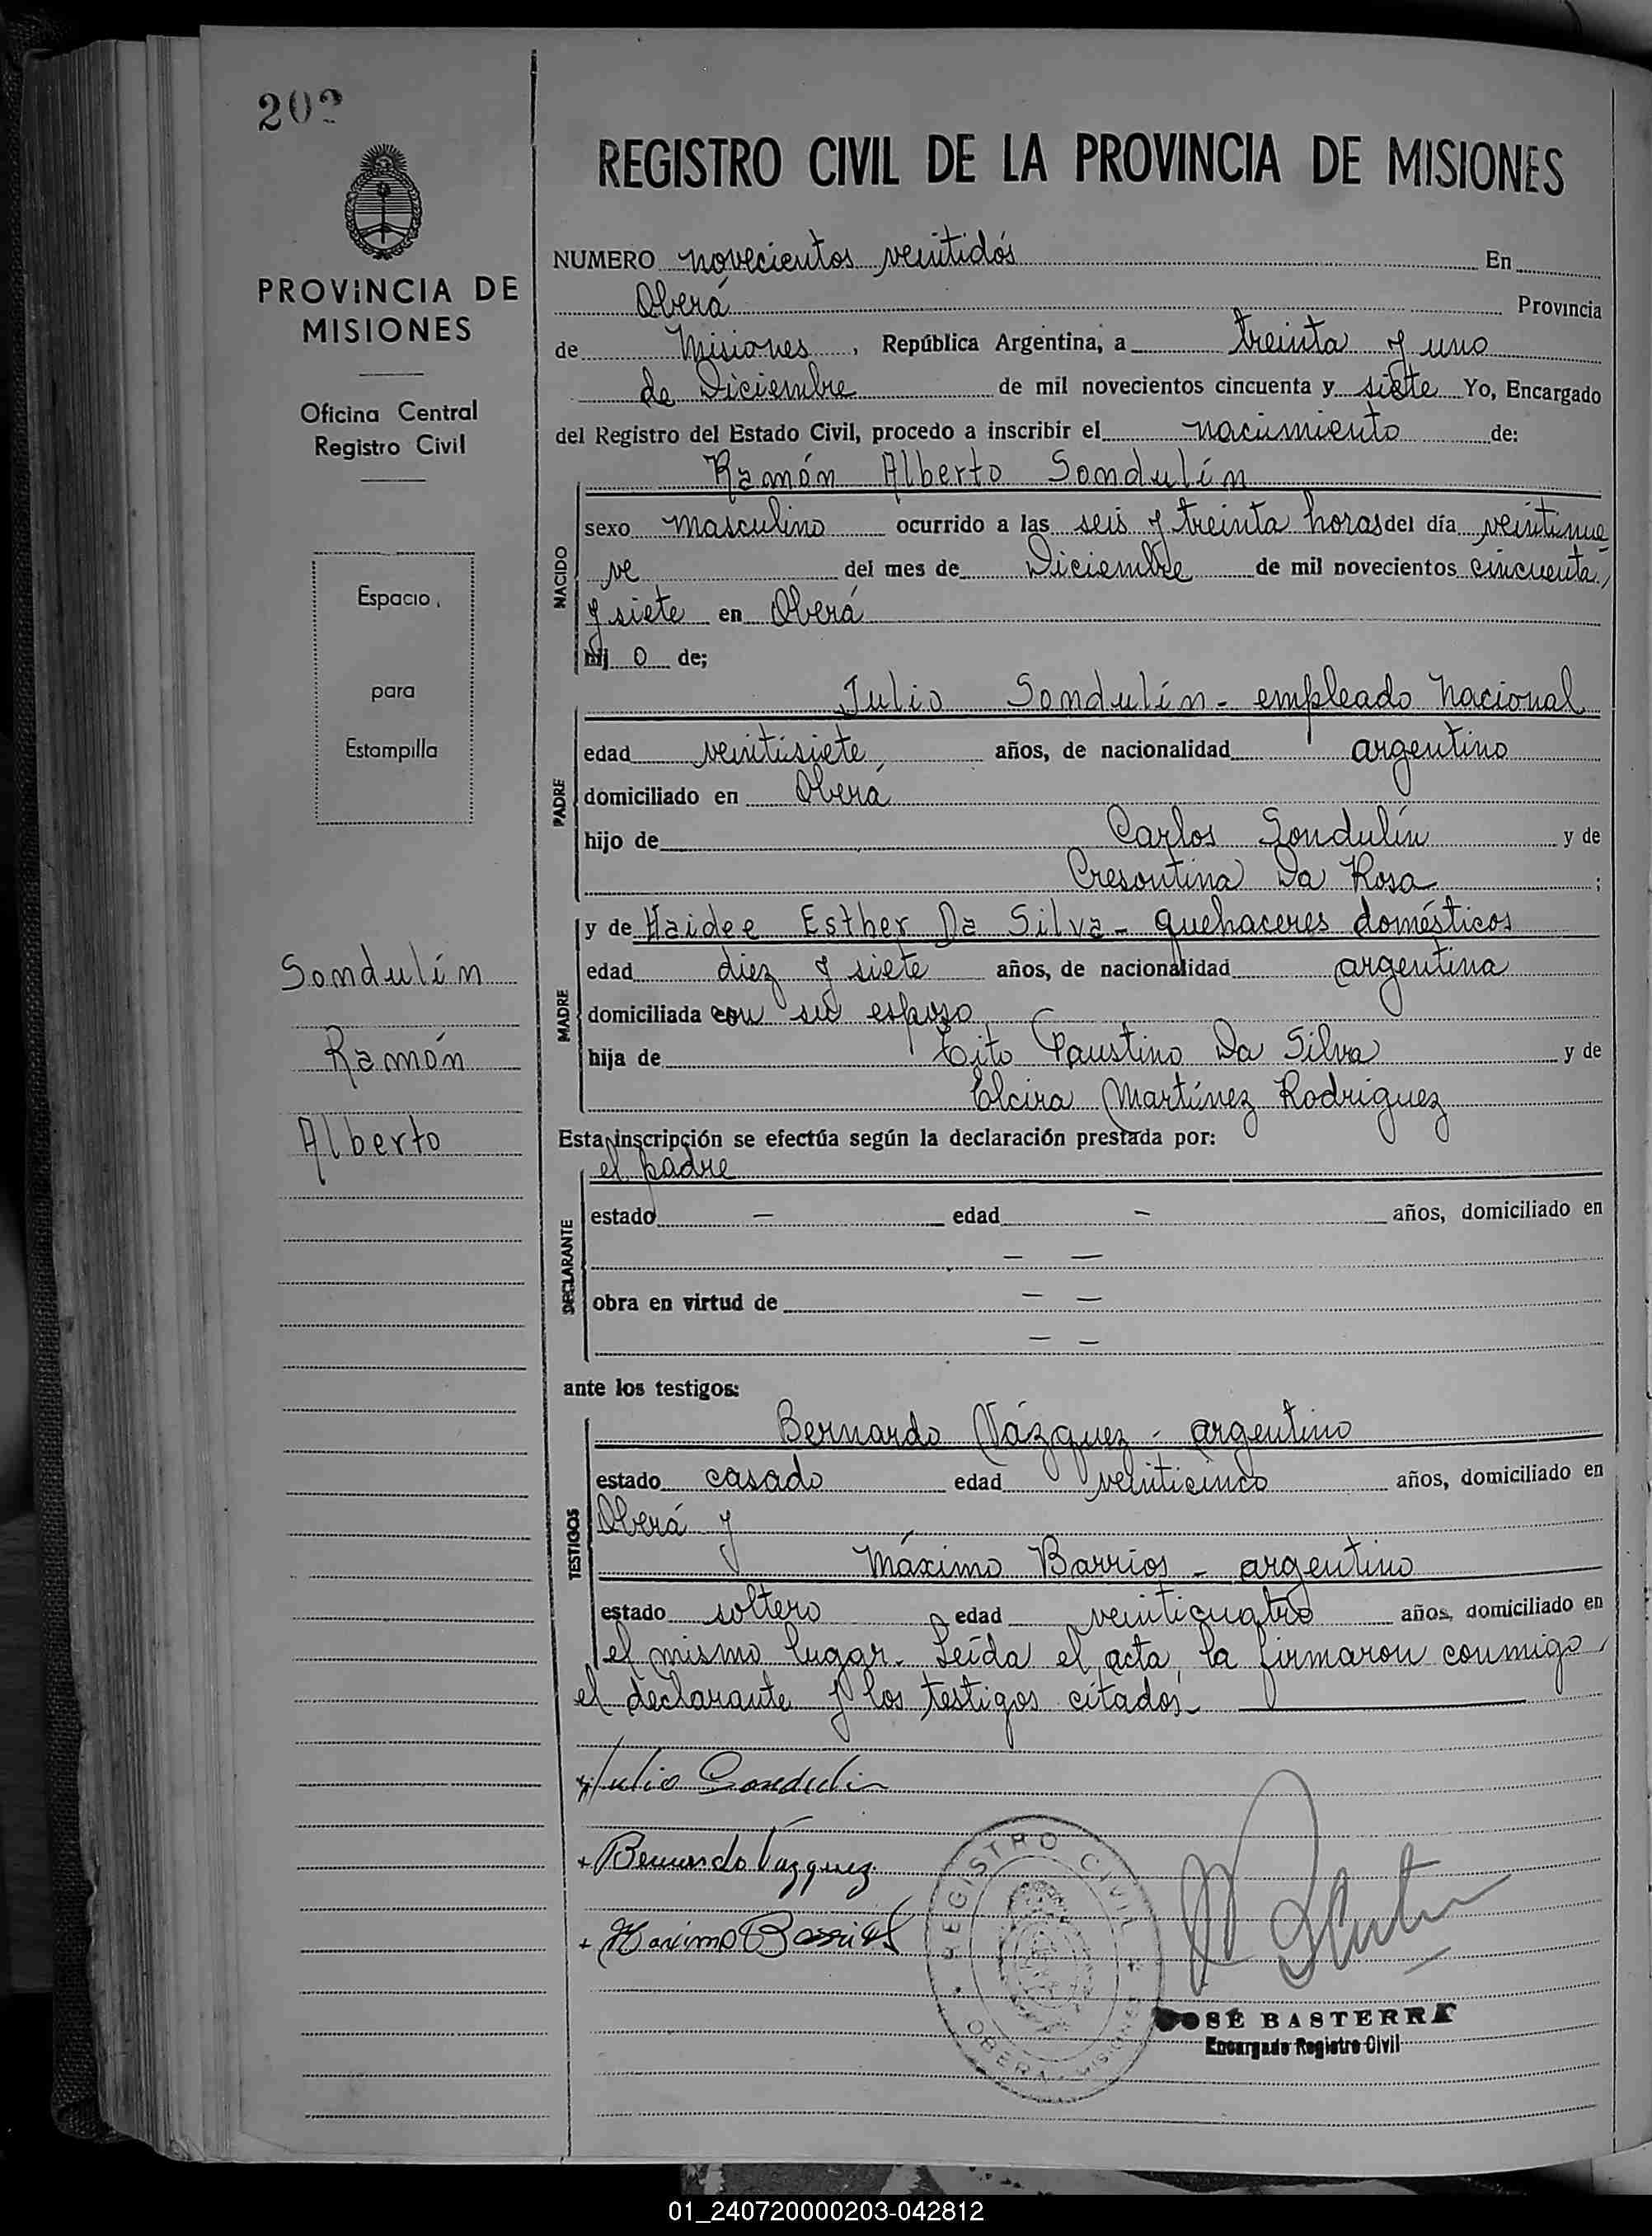 202
REGISTRO CIVIL DE LA PROVINCIA DE MISIONES
PROVINCIA DE
MISIONES
Oficina Central
Registro Civil
Espacio
para
Estampilla
Sondulín
Ramón
Alberto
NUMERO novecientos veintidós En
Oberá Provincia
de Misiones, República Argentina, a treinta y uno
de Diciembre de mil novecientos cincuenta y siete Yo, Encargado
del Registro del Estado Civil, procedo a inscribir el nacimiento de:
Ramón Alberto Sondulín
NACIDO
sexo masculino ocurrido a las seis y treinta horas del día veintinue
ve del mes de Diciembre de mil novecientos cincuenta
y siete en Oberá
hij o de;
Julio Sondulín - empleado nacional
PADRE
edad veintisiete años, de nacionalidad argentino
domiciliado en Oberá
hijo de Carlos Sondulín y de
Cresontina Da Rosa ;
y de Haidee Esther Da Silva - quehaceres domésticos
MADRE
edad diez y siete años, de nacionalidad argentina
domiciliada con su esposo
hija de Tito Faustino Da Silva y de
Elcira Martínez Rodríguez
Esta inscripción se efectúa según la declaración prestada por:
el padre
DECLARANTE
estado — edad — años, domiciliado en
— —
obra en virtud de — —
— —
ante los testigos:
Bernardo Vázquez - argentino
TESTIGOS
estado casado edad veinticinco años, domiciliado en
Oberá y
Máximo Barrios - argentino
estado soltero edad veinticuatro años, domiciliado en
el mismo lugar. Leída el acta, la firmaron conmigo,
el declarante y los testigos citados.
Julio Sondulin
+ Bernardo Vázquez
+ Maximo Barrios
REGISTRO CIVIL
OBERA - MISIONES
JOSÉ BASTERRA
Encargado Registro Civil
01_240720000203-042812